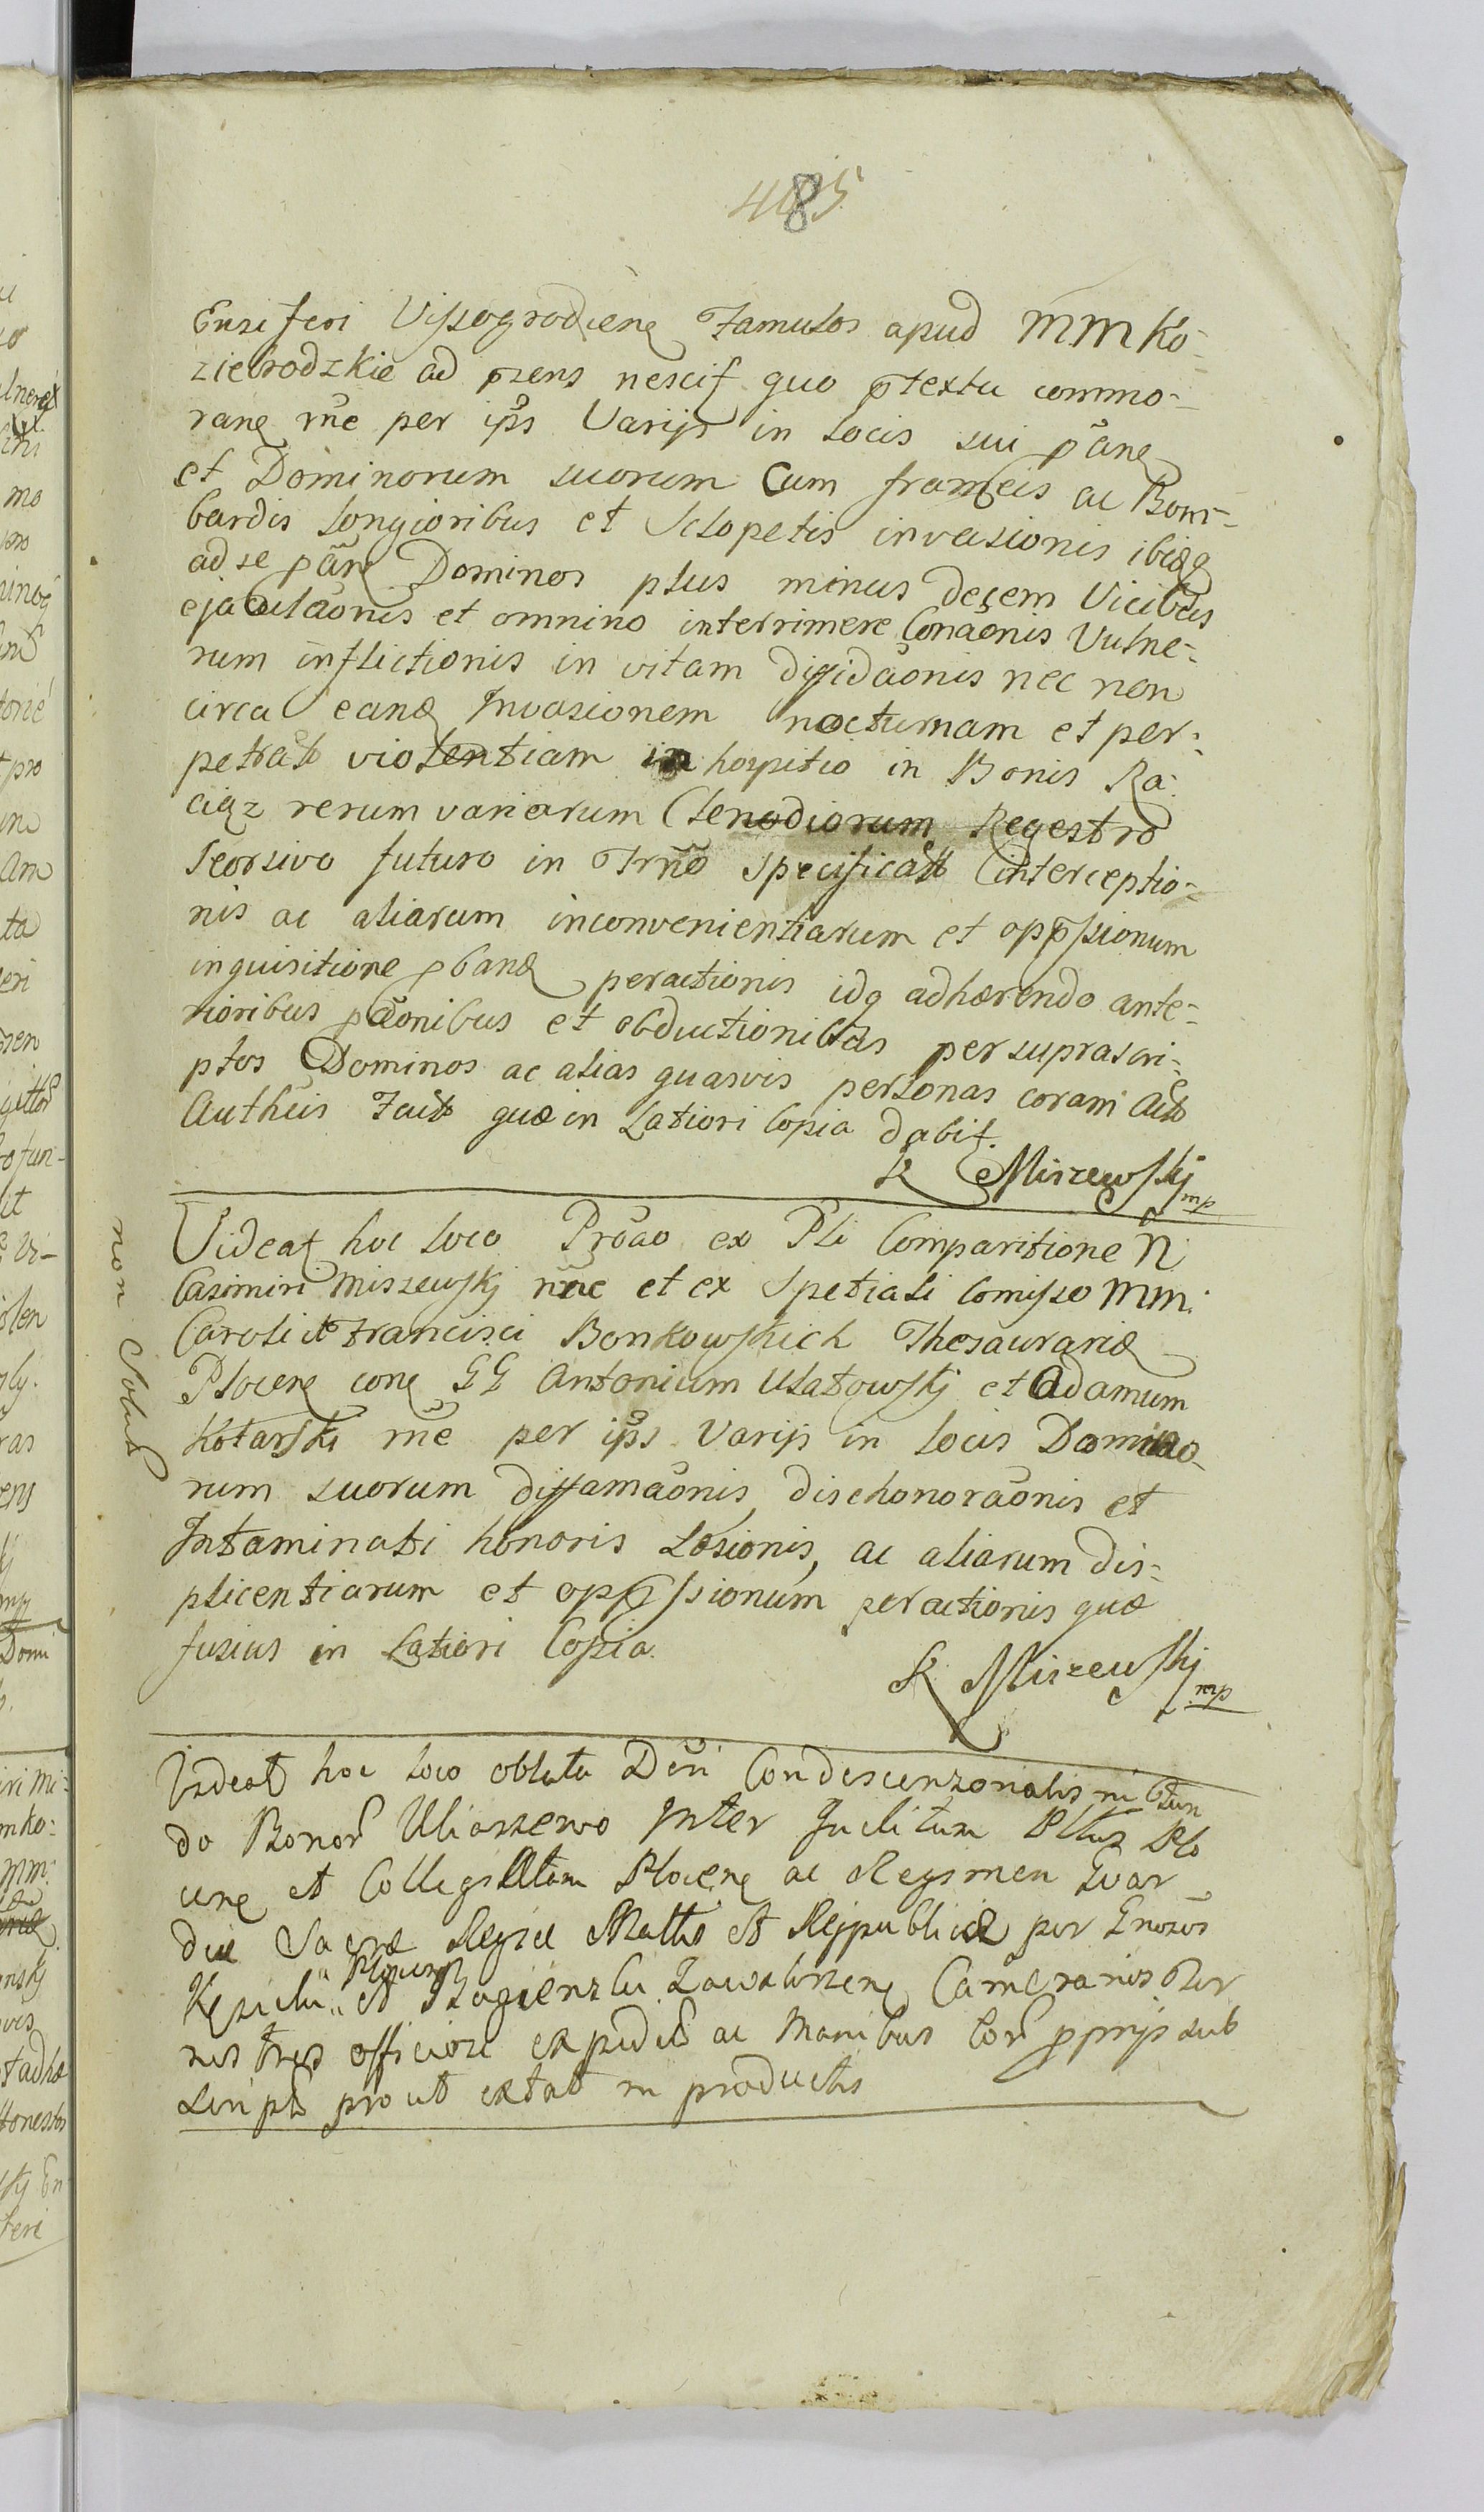 485
Ensiferi Vissogrodiens Famulos apud MM Ko-
ziebrodzkie ad pzens nescit quo ptextu commo-
ran rne per ips Varijs in locis sui pane
et Dominorum suorum Cum frameis ac Bom-
bardis longioribus et Sclopetis invasionis ibidq
ad se pane Dominos plus minus decem Vicibus
ejaculaonis et omnino interrimere Conaonis Vulne-
rum inflictionis in vitam diffidaonis nec non
circa eand Invasionem nocturnam et per-
petrat violentiam in hospitio in Bonis Ra-
ciąz rerum variarum Clenodiorum Regestro
seorsivo futuro in Trno specificat interceptio-
nis ac aliarum inconvenientiarum et oppssionum
inquisitione pband peractionis idq adhærendo ante-
rioribus pōonibus et obductionibus per suprascri-
ptos Dominos ac alias quasvis personas coram Act
Autheis Fact quæ in Latiori Copia dabit.
K Miszewskj mp
Videat hoc loco Proāo ex Pli Comparitione N
Casimiri Miszewskj nne et ex Spetiali Comisso MM
Caroli et Francisci Bonkowskich Thesaurarid
Plocens con GG Antonium Ulatowskj et Adamum
Kotarski rne per ips Varijs in locis Domino-
rum suorum diffamaonis, dischonoraonis et
Intaminati honoris Læsionis, ac aliarum dis-
plicentiarum et oppssionum peractionis quæ
fusius in Latiori Copia.
K Miszewskj mp
non Solut
Videat hoc loco oblata Dni Condescenzonalis in fun
do Bonor Uliaszewo Inter Inclitum Pltus Plo
cens et Collegiatam Plocens ac Regimen Gvar
diæ Sacræ Regiæ Mattis et Rejpublicæ per Gnosos
Plocens
et Zawskrzens Cameranos Ter
rios officiose expedit ac Manibus eor pprijs sub
script prout extat in productis